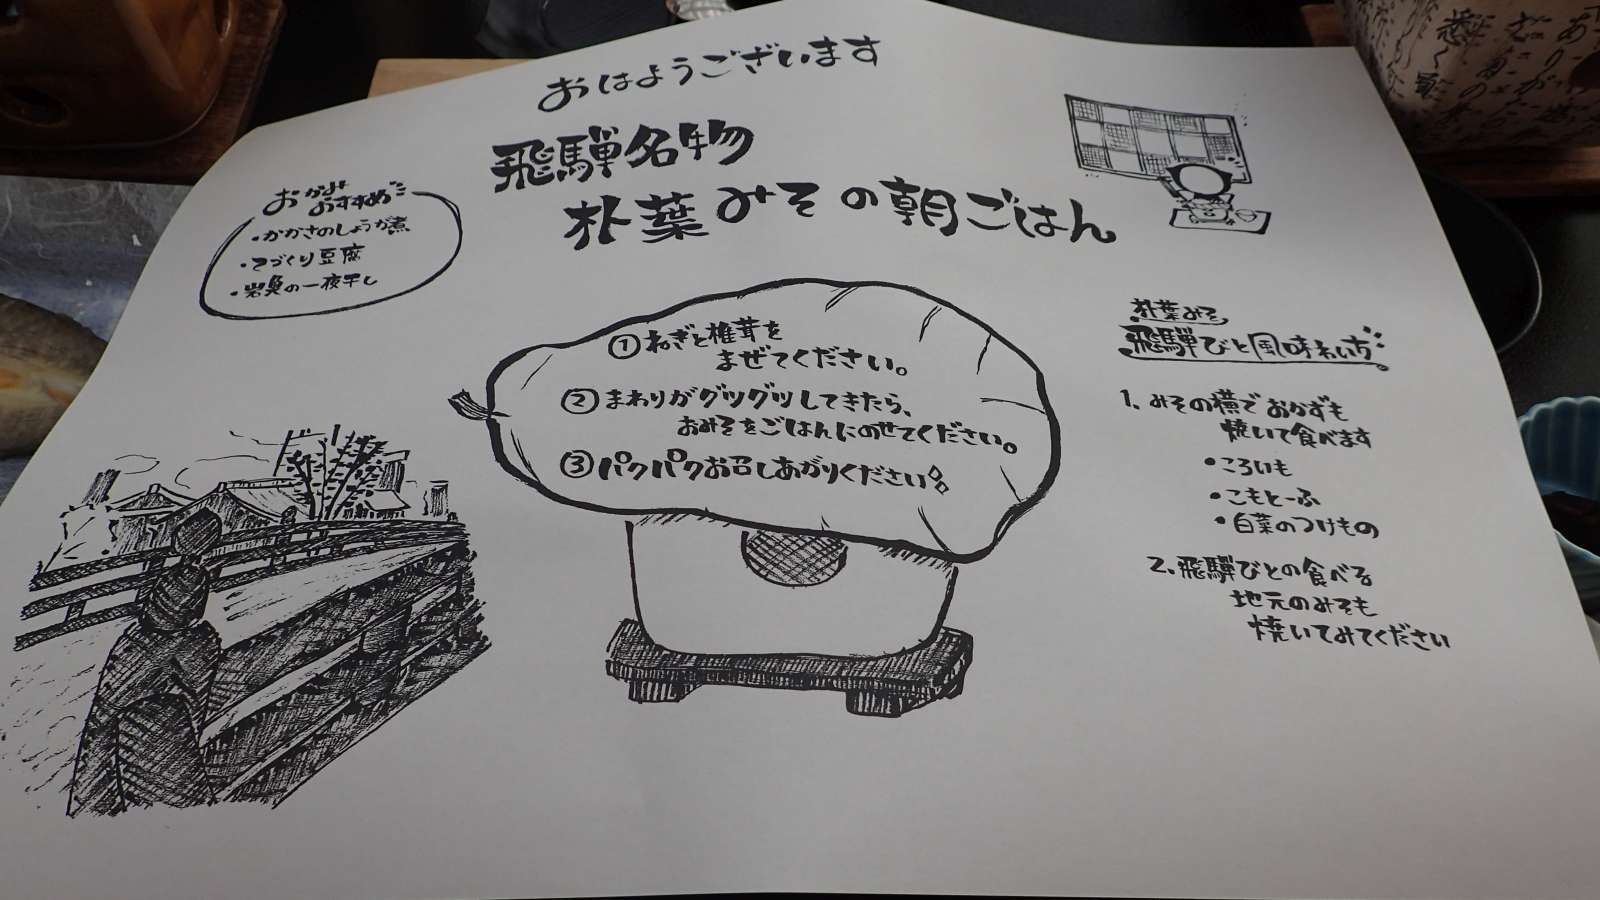 おはようございます
飛騨名物
朴葉みその朝ごはん
おかみ
おすすめ
・かかさのしょうが煮
・てづくり豆腐
・岩魚の一夜干し
①ねぎと椎茸を
まぜてください。
②まわりがグツグツしてきたら、
おみそをごはんにのせてください。
③パクパクお召しあがりください
朴葉みそ
飛騨びと風味わい方
1、みその横でおかずも
焼いて食べます
・ころいも
・こもとーふ
・白菜のつけもの
2、飛騨びとの食べる
地元のみそも
焼いてみてください